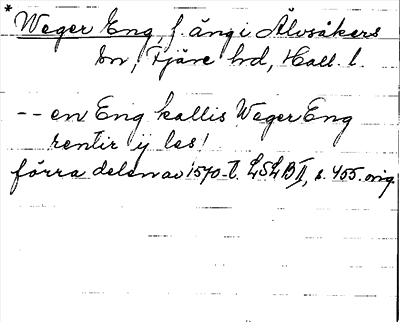 * Weger Eng, f. äng i Älvsåkers
sn, Fjäre hd, Hall. l.
-- en Eng kallis Weger Eng
rentir ij les!
förra delen av 1570-t. LSLB II, s. 455. orig.